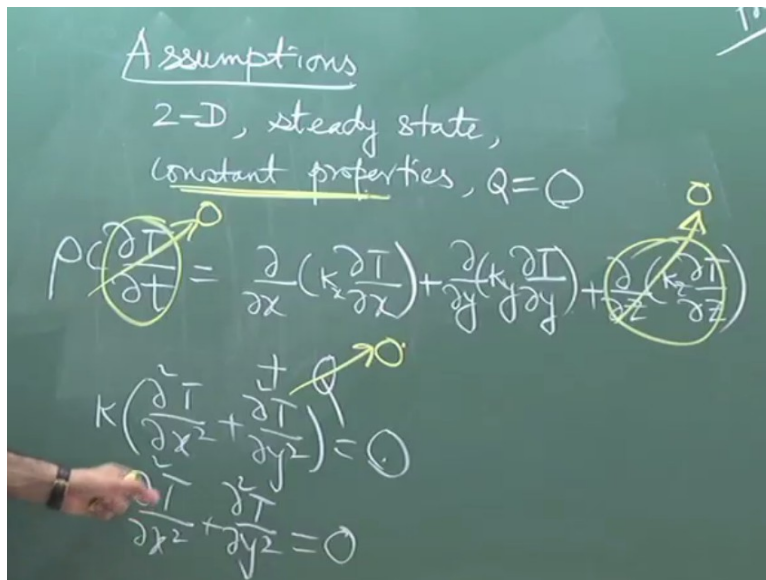 Assumptions
2-D, steady state,
constant properties, Q = 0
ρC ∂T/∂t = ∂/∂x (kx ∂T/∂x) + ∂/∂y (ky ∂T/∂y) + ∂/∂z (kz ∂T/∂z)
0 0
+ Q 0
K (∂²T/∂x² + ∂T/∂y²) = 0
∂²T/∂x² + ∂²T/∂y² = 0